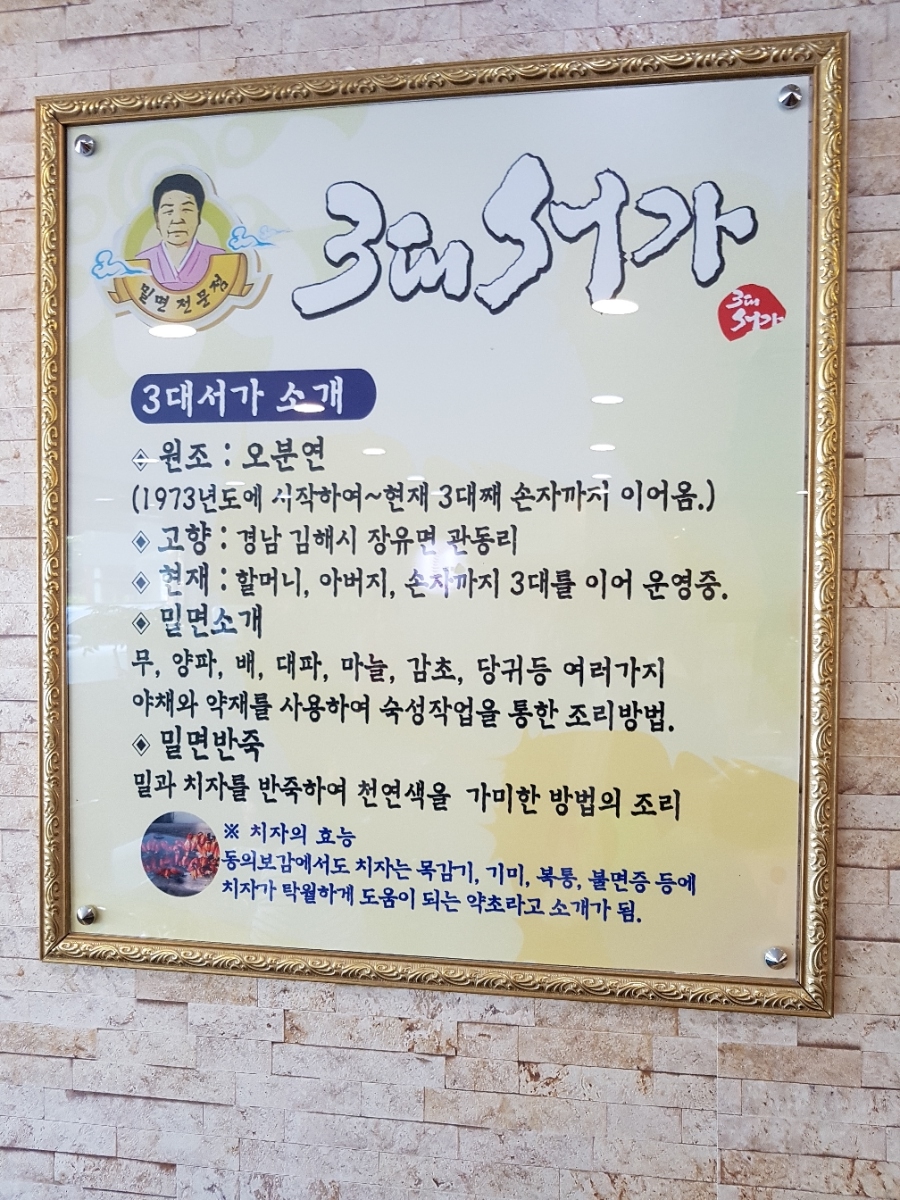 밀면전문점
3대서가
3대
서가
3대서가 소개
◈ 원조 : 오분연
(1973년도에 시작하여~현재 3대째 손자까지 이어옴.)
◈ 고향 : 경남 김해시 장유면 관동리
◈ 현재 : 할머니, 아버지, 손자까지 3대를 이어 운영중.
◈ 밀면소개
무, 양파, 배, 대파, 마늘, 감초, 당귀등 여러가지
야채와 약재를 사용하여 숙성작업을 통한 조리방법.
◈ 밀면반죽
밀과 치자를 반죽하여 천연색을 가미한 방법의 조리
※ 치자의 효능
동의보감에서도 치자는 목감기, 기미, 복통, 불면증 등에
치자가 탁월하게 도움이 되는 약초라고 소개가 됨.